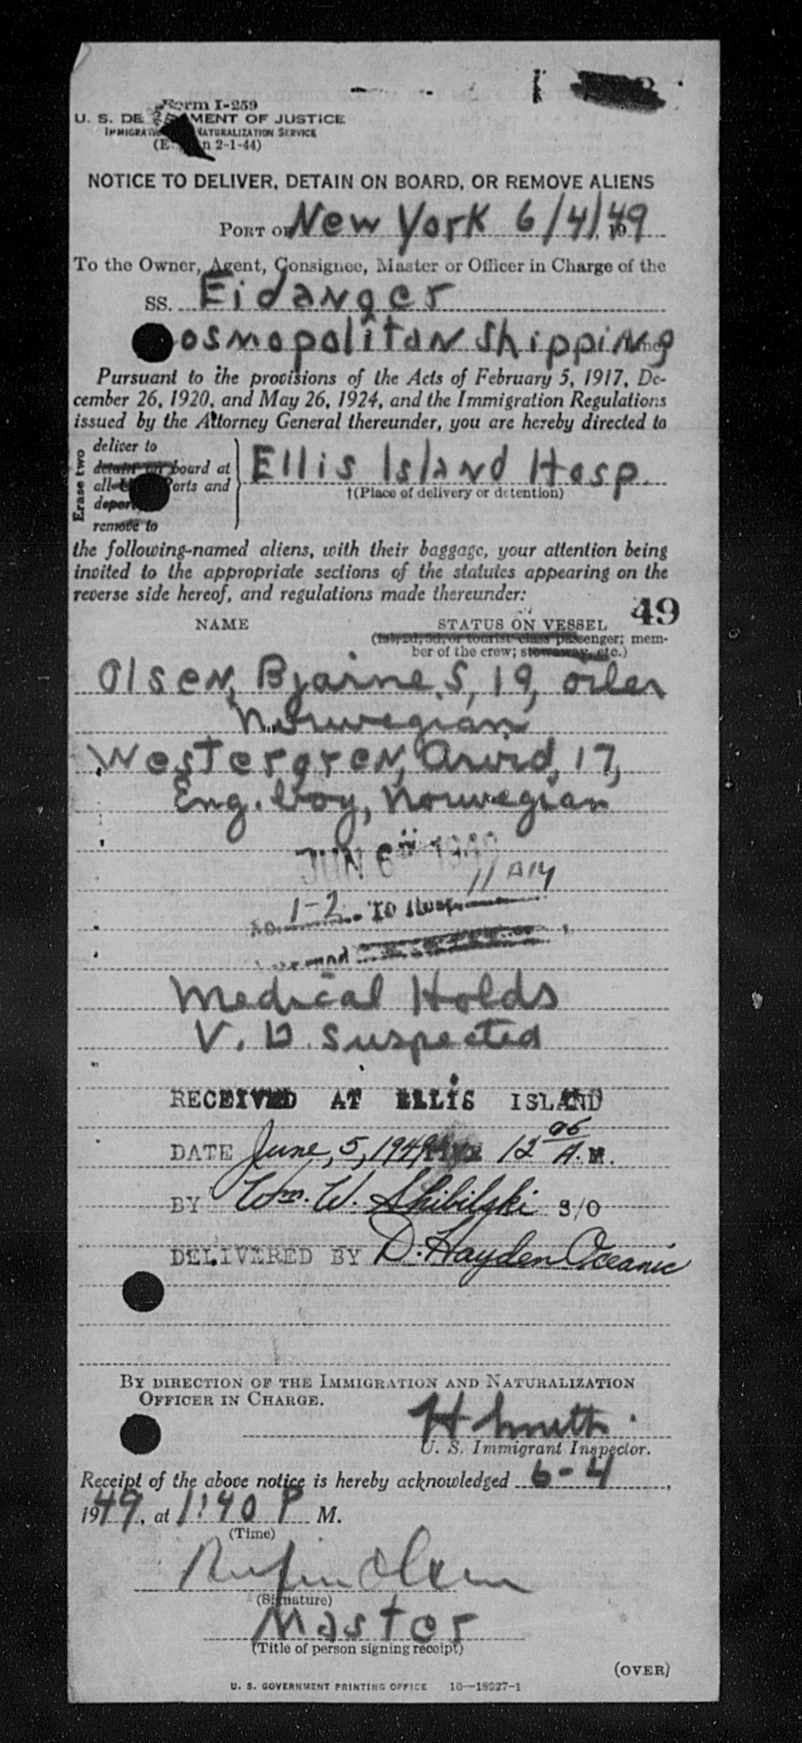 Form I-259
U. S. DE MENT OF JUSTICE
IMMIGRATION NATURALIZATION SERVICE
(E n 2-1-44)
NOTICE TO DELIVER, DETAIN ON BOARD, OR REMOVE ALIENS
PORT OF New York 6/4/49
To the Owner, Agent, Consignee, Master or Officer in Charge of the
SS. Eidanger
osmopolitan Shipping
Pursuant to the provisions of the Acts of February 5, 1917, De-
cember 26, 1920, and May 26, 1924, and the Immigration Regulations
issued by the Attorney General thereunder, you are hereby directed to
Erase two
deliver to
detain on board at
all ports and
deport
remove to
Ellis Island Hosp.
†(Place of delivery or detention)
the following-named aliens, with their baggage, your attention being
invited to the appropriate sections of the statutes appearing on the
reverse side hereof, and regulations made thereunder:
49
NAME STATUS ON VESSEL
(1st, 2d, 3d, or tourist class passenger; mem-
ber of the crew; stowaway, etc.)
Olsen, Bjarne S, 19, oiler
Norwegian
Westergren, Arvid, 17,
Eng. boy, Norwegian
JUN 6 1949
11 AM
1-2 TO Hosp.
Medical Holds
V. D. Suspected
RECEIVED AT ELLIS ISLAND
DATE June, 5, 1949 TIME 12 05 A.M.
BY Wm. W. Shibilski S/O
DELIVERED BY D. Hayden Oceanic
BY DIRECTION OF THE IMMIGRATION AND NATURALIZATION
OFFICER IN CHARGE.
H Smith
U. S. Immigrant Inspector.
Receipt of the above notice is hereby acknowledged 6-4,
1949, at 1:40 P M.
(Time)
Olsen
(Signature)
Master
(Title of person signing receipt)
(OVER)
U. S. GOVERNMENT PRINTING OFFICE 16—18927-1